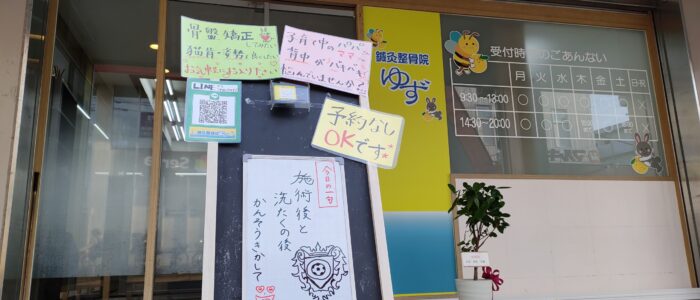 骨盤矯正
してみたい
猫背・姿勢を良くしたい
お気軽にお入り下さい
LINE
子育て中のパパ
ママ
背中がバキバキ
悩んでいませんか?
予約なし
OKです
今日の一句
施術後と
洗たくの後
かんそうきかして
鍼灸整骨院
ゆず
受付時間のごあんない
月 火 水 木 金 土 日・祝
9:30〜13:00
14:30〜20:00